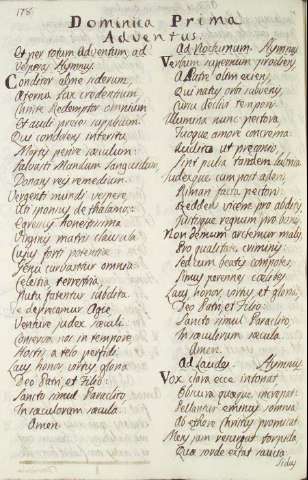 178.
Dominica Prima
Adventus.
Et per totum Adventum, ad
Vesperas Hymnus.
Conditor alme siderum,
Æterna lux credentium
Christe Redemptor omnium
Exaudi preces supplicum.
Qui condolens interitu
Mortis perire sæculum
Salvasti Mundum languidum,
Donans reis remedium.
Vergente mundi vespere,
Uti sponsus de thalamo,
Egressus honestissima
Virginis matris clausula.
Cujus forti potentiæ
Genu curvantur omnia
Cælestia, terrestria,
Nutu fatentur subdita.
Te deprecamur Agie
Venture judex sæculi
Conserva nos in tempore
Hostis a telo perfidi.
Laus honor, virtus gloria
Deo Patri, et Filio:
Sancto simul Paraclito,
In sæculorum sæcula.
Amen
Ad Nocturnum Hymnus.
Verbum supernum prodiens,
A Patre olim exiens,
Qui natus orbi subvenis,
Cursu declivi temporis
Illumina nunc pectora,
Tuoque amore concrema:
Audita ut præconia,
Sint pulsa tandem lubrica
Judexque cum post aderis
Rimari facta pectoris
Reddens vicem pro abditis
Justisque regnum pro bonis
Non demum arctemur malis
Pro qualitate criminis
Sed cum beatis compotes,
Simus perennes cœlibes
Laus honor, virtus, et gloria
Deo Patri, et Filio:
Sancto simul Paraclito,
In sæculorum sæcula
Amen.
Ad Laudes Hymnus
Vox clara ecce intonat,
Obscura quæque increpat:
Pellantur eminus somnia
Ab æthere Christus promicat
Mens jam resurgat torpida
Quæ sorde extat saucia
Sidus